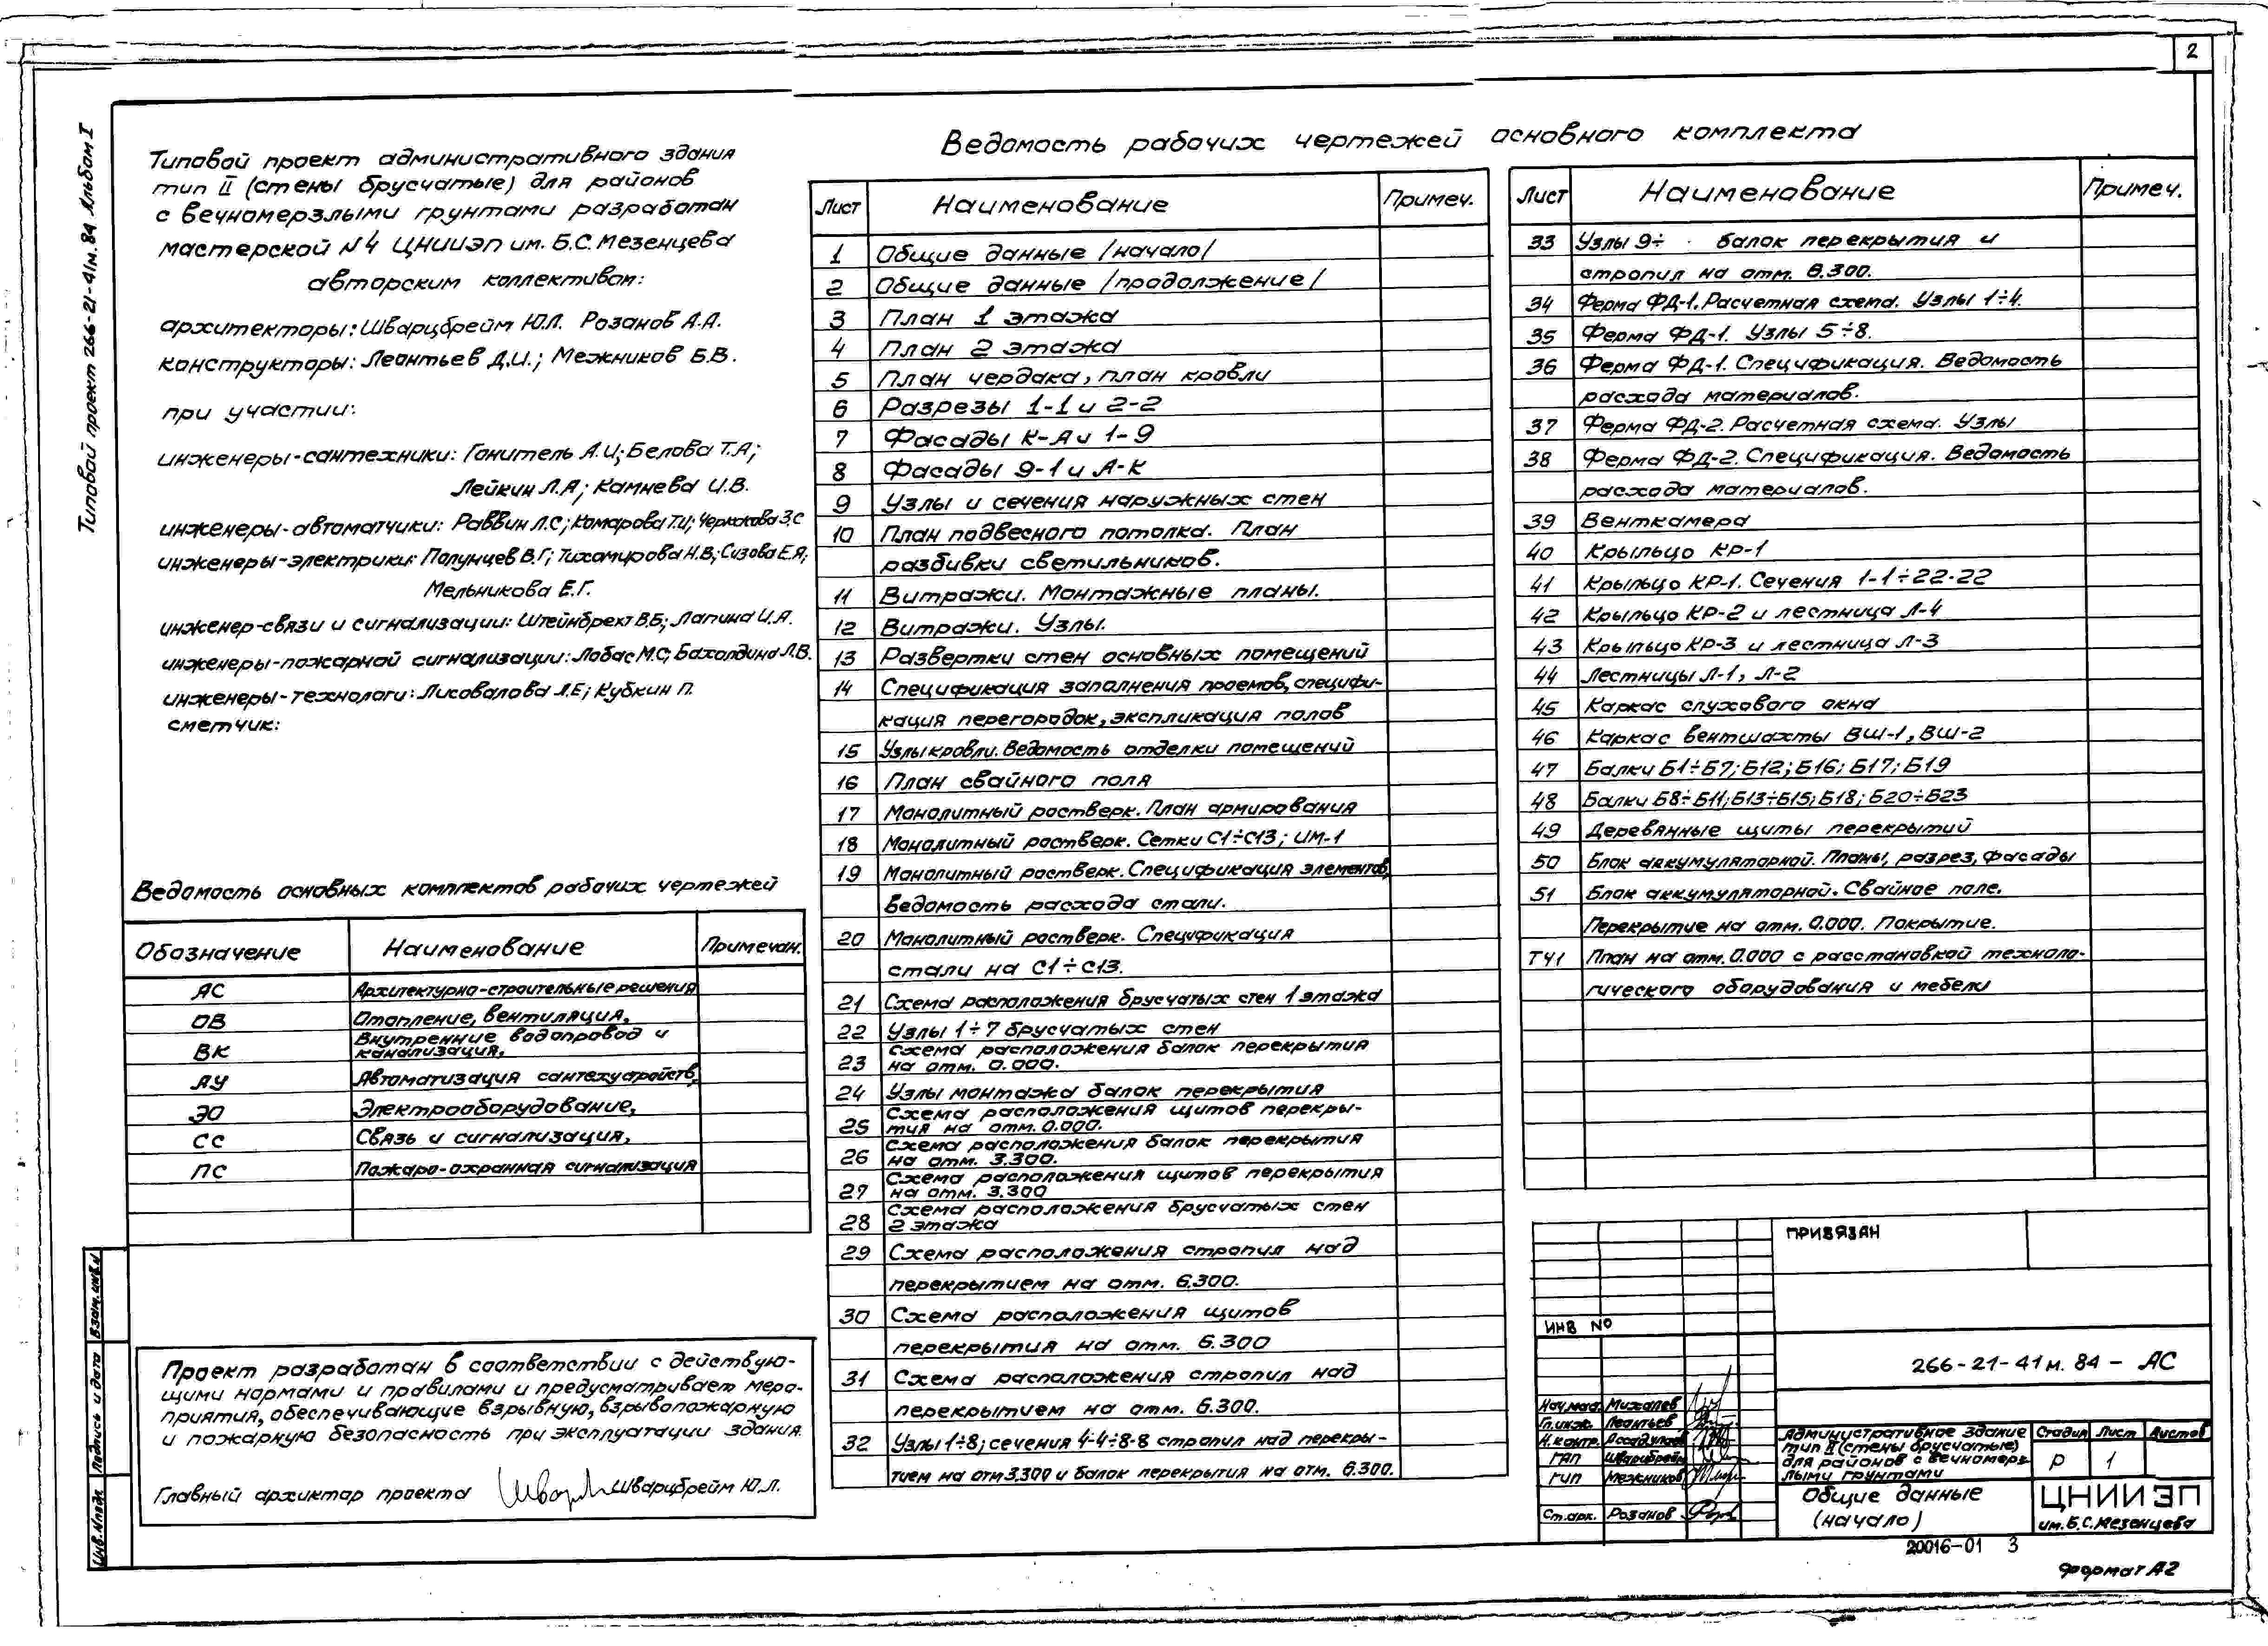 2
Типовой проект 266-21-41м.84 Альбом I
Типовой проект административного здания
тип II (стены брусчатые) для районов
с вечномерзлыми грунтами разработан
мастерской №4 ЦНИИЭП им. Б.С. Мезенцева
авторским коллективом:
архитекторы: Шварцбрейм Ю.Л. Розанов А.А.
конструкторы: Леонтьев Д.И.; Межников Б.В.
при участии:
инженеры-сантехники: Гонитель А.И; Белова Т.А;
Лейкин Л.А; Камнева И.В.
инженеры-автоматчики: Раввин Л.С; Комарова Т.И; Чернакова З.С
инженеры-электрики: Полунцев В.Г; Тихомирова Н.В; Сизова Е.Я;
Мельникова Е.Г.
инженер-связи и сигнализации: Штейнбрехт В.Б; Лапина И.А.
инженеры-пожарной сигнализации: Лобас М.С; Бахолдина Л.В.
инженеры-технологи: Лисовалова Л.Е; Кубкин П.
сметчик:
Ведомость основных комплектов рабочих чертежей
Обозначение Наименование Примечан.
АС Архитектурно-строительные решения
ОВ Отопление, вентиляция,
ВК Внутренние водопровод и
канализация,
АУ Автоматизация сантехустройств,
ЭО Электрооборудование,
СС Связь и сигнализация,
ПС Пожаро-охранная сигнализация
Проект разработан в соответствии с действую-
щими нормами и правилами и предусматривает меро-
приятия, обеспечивающие взрывную, взрывопожарную
и пожарную безопасность при эксплуатации здания.
Главный архиктор проекта Шварцбрейм Ю.Л.
Ведомость рабочих чертежей основного комплекта
Лист Наименование Примеч.
1 Общие данные /начало/
2 Общие данные /продолжение/
3 План 1 этажа
4 План 2 этажа
5 План чердака, план кровли
6 Разрезы 1-1 и 2-2
7 Фасады К-А и 1-9
8 Фасады 9-1 и А-К
9 Узлы и сечения наружных стен
10 План подвесного потолка. План
разбивки светильников.
11 Витражи. Монтажные планы.
12 Витражи. Узлы.
13 Развертки стен основных помещений
14 Спецификация заполнения проемов, специфи-
кация перегородок, экспликация полов
15 Узлы кровли. Ведомость отделки помещений
16 План свайного поля
17 Монолитный ростверк. План армирования
18 Монолитный ростверк. Сетки С1÷С13; ИМ-1
19 Монолитный ростверк. Спецификация элементов,
ведомость расхода стали.
20 Монолитный ростверк. Спецификация
стали на С1÷С13.
21 Схема расположения брусчатых стен 1 этажа
22 Узлы 1÷7 брусчатых стен
23 Схема расположения балок перекрытия
на отм. 0.000.
24 Узлы монтажа балок перекрытия
25 Схема расположения щитов перекры-
тия на отм. 0.000.
26 Схема расположения балок перекрытия
на отм. 3.300.
27 Схема расположения щитов перекрытия
на отм. 3.300
28 Схема расположения брусчатых стен
2 этажа
29 Схема расположения стропил над
перекрытием на отм. 6.300.
30 Схема расположения щитов
перекрытия на отм. 6.300
31 Схема расположения стропил над
перекрытием на отм. 6.300.
32 Узлы 1÷8; сечения 4-4÷8-8 стропил над перекры-
тием на отм 3.300 и балок перекрытия на отм. 6.300.
Лист Наименование Примеч.
33 Узлы 9÷ балок перекрытия и
стропил на отм. 6.300.
34 Ферма ФД-1. Расчетная схема. Узлы 1÷4.
35 Ферма ФД-1. Узлы 5÷8.
36 Ферма ФД-1. Спецификация. Ведомость
расхода материалов.
37 Ферма ФД-2. Расчетная схема. Узлы
38 Ферма ФД-2. Спецификация. Ведомость
расхода материалов.
39 Венткамера
40 Крыльцо КР-1
41 Крыльцо КР-1. Сечения 1-1÷22-22
42 Крыльцо КР-2 и лестница Л-4
43 Крыльцо КР-3 и лестница Л-3
44 Лестницы Л-1, Л-2
45 Каркас слухового окна
46 Каркас вентшахты ВШ-1, ВШ-2
47 Балки Б1÷Б7; Б12; Б16; Б17; Б19
48 Балки Б8÷Б11; Б13÷Б15; Б18; Б20÷Б23
49 Деревянные щиты перекрытий
50 Блок аккумуляторной. Планы, разрез, фасады
51 Блок аккумуляторной. Свайное поле.
Перекрытие на отм. 0.000. Покрытие.
ТЧ1 План на отм. 0.000 с расстановкой техноло-
гического оборудования и мебели
ПРИВЯЗАН
ИНВ №
266-21-41м.84 - АС
Нач.мас. Михалев
Гл.инж. Леонтьев
Н.контр. Асадулаев
ГАП Шварцбрейм
ГИП Межников
Ст.арх. Розанов
Административное здание
тип II (стены брусчатые)
для районов с вечномерз-
лыми грунтами
Стадия Лист Листов
Р 1
Общие данные
(начало)
ЦНИИЭП
им. Б.С. Мезенцева
20016-01 3
Формат А2
Инв.№подл. Подпись и дата Взам.инв.№